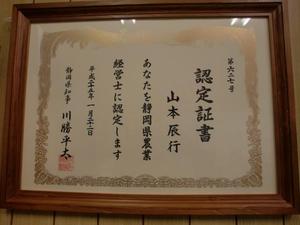 第六二七号
認定証書
山本辰行
あなたを静岡県農業
経営士に認定します
平成二十五年一月二十二日
静岡県知事 川勝平太